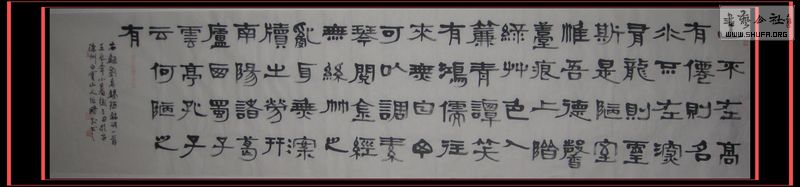 不在高
有僊則名
水不在深
有龍則靈
斯是陋室
惟吾德馨
薹痕上階
綠艸色入
簾青譚笑
有鴻儒往
來無白丁
可以調素
琴閱金經
無絲竹之
亂耳無案
牘之勞形
南陽諸葛
廬西蜀子
雲亭孔子
云何陋之
有
右錄劉禹錫陋室銘一首
書藝公社
WWW.SHUFA.ORG